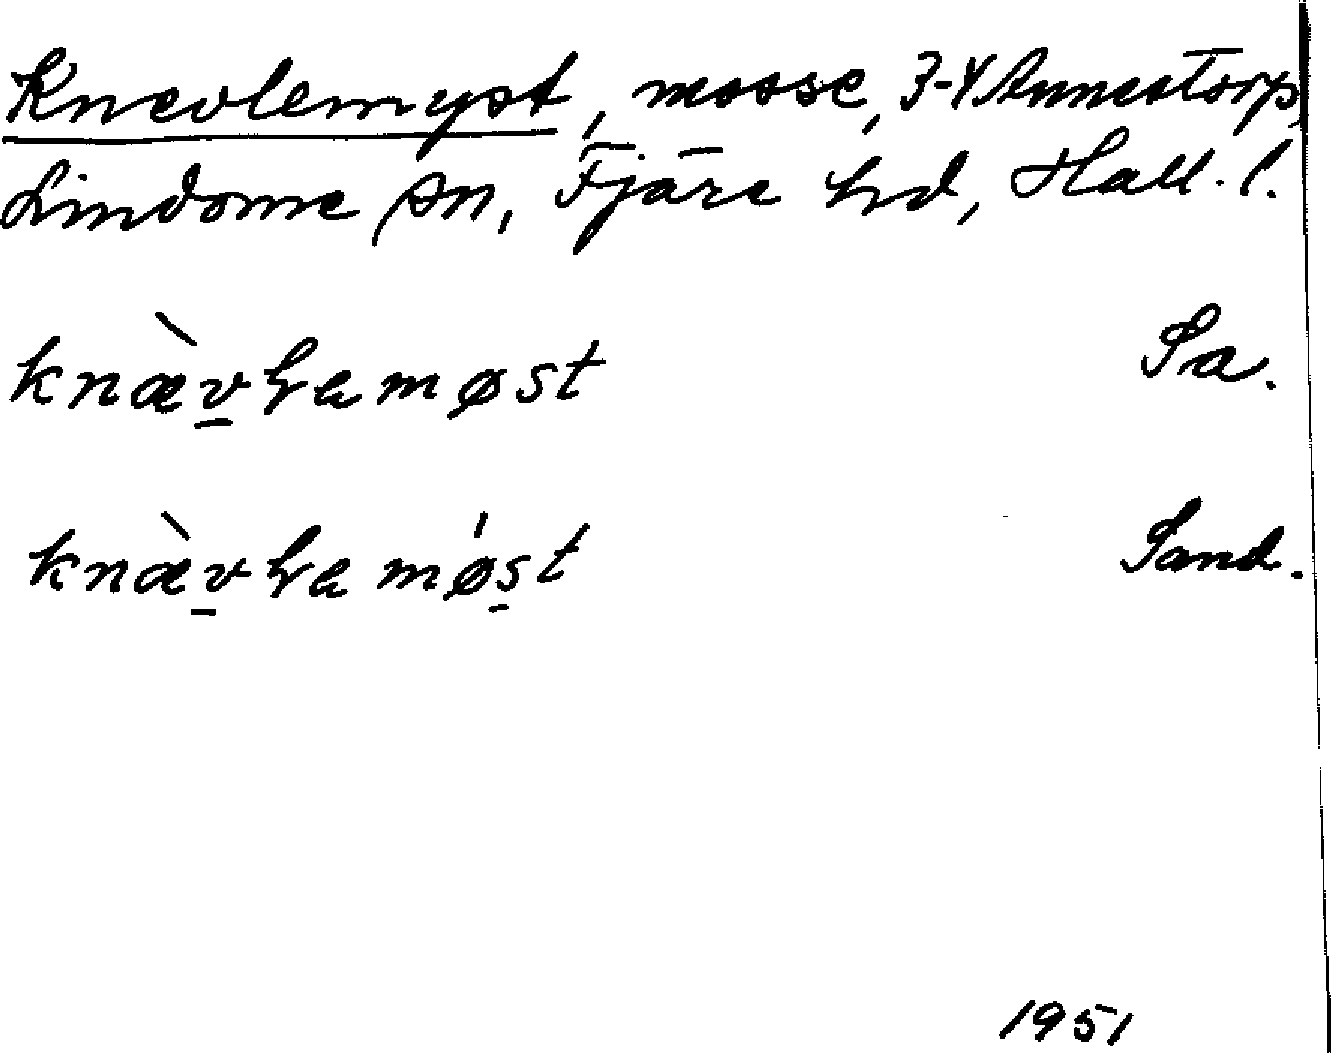 Knevlemyst, mosse, 3-4 Annestorp,
Lindome sn, Fjäre hd, Hall. l.
knæ̀v̱ⱡamøst Sa.
knæ̀v̱ⱡamǿs̱t Sand.
1951